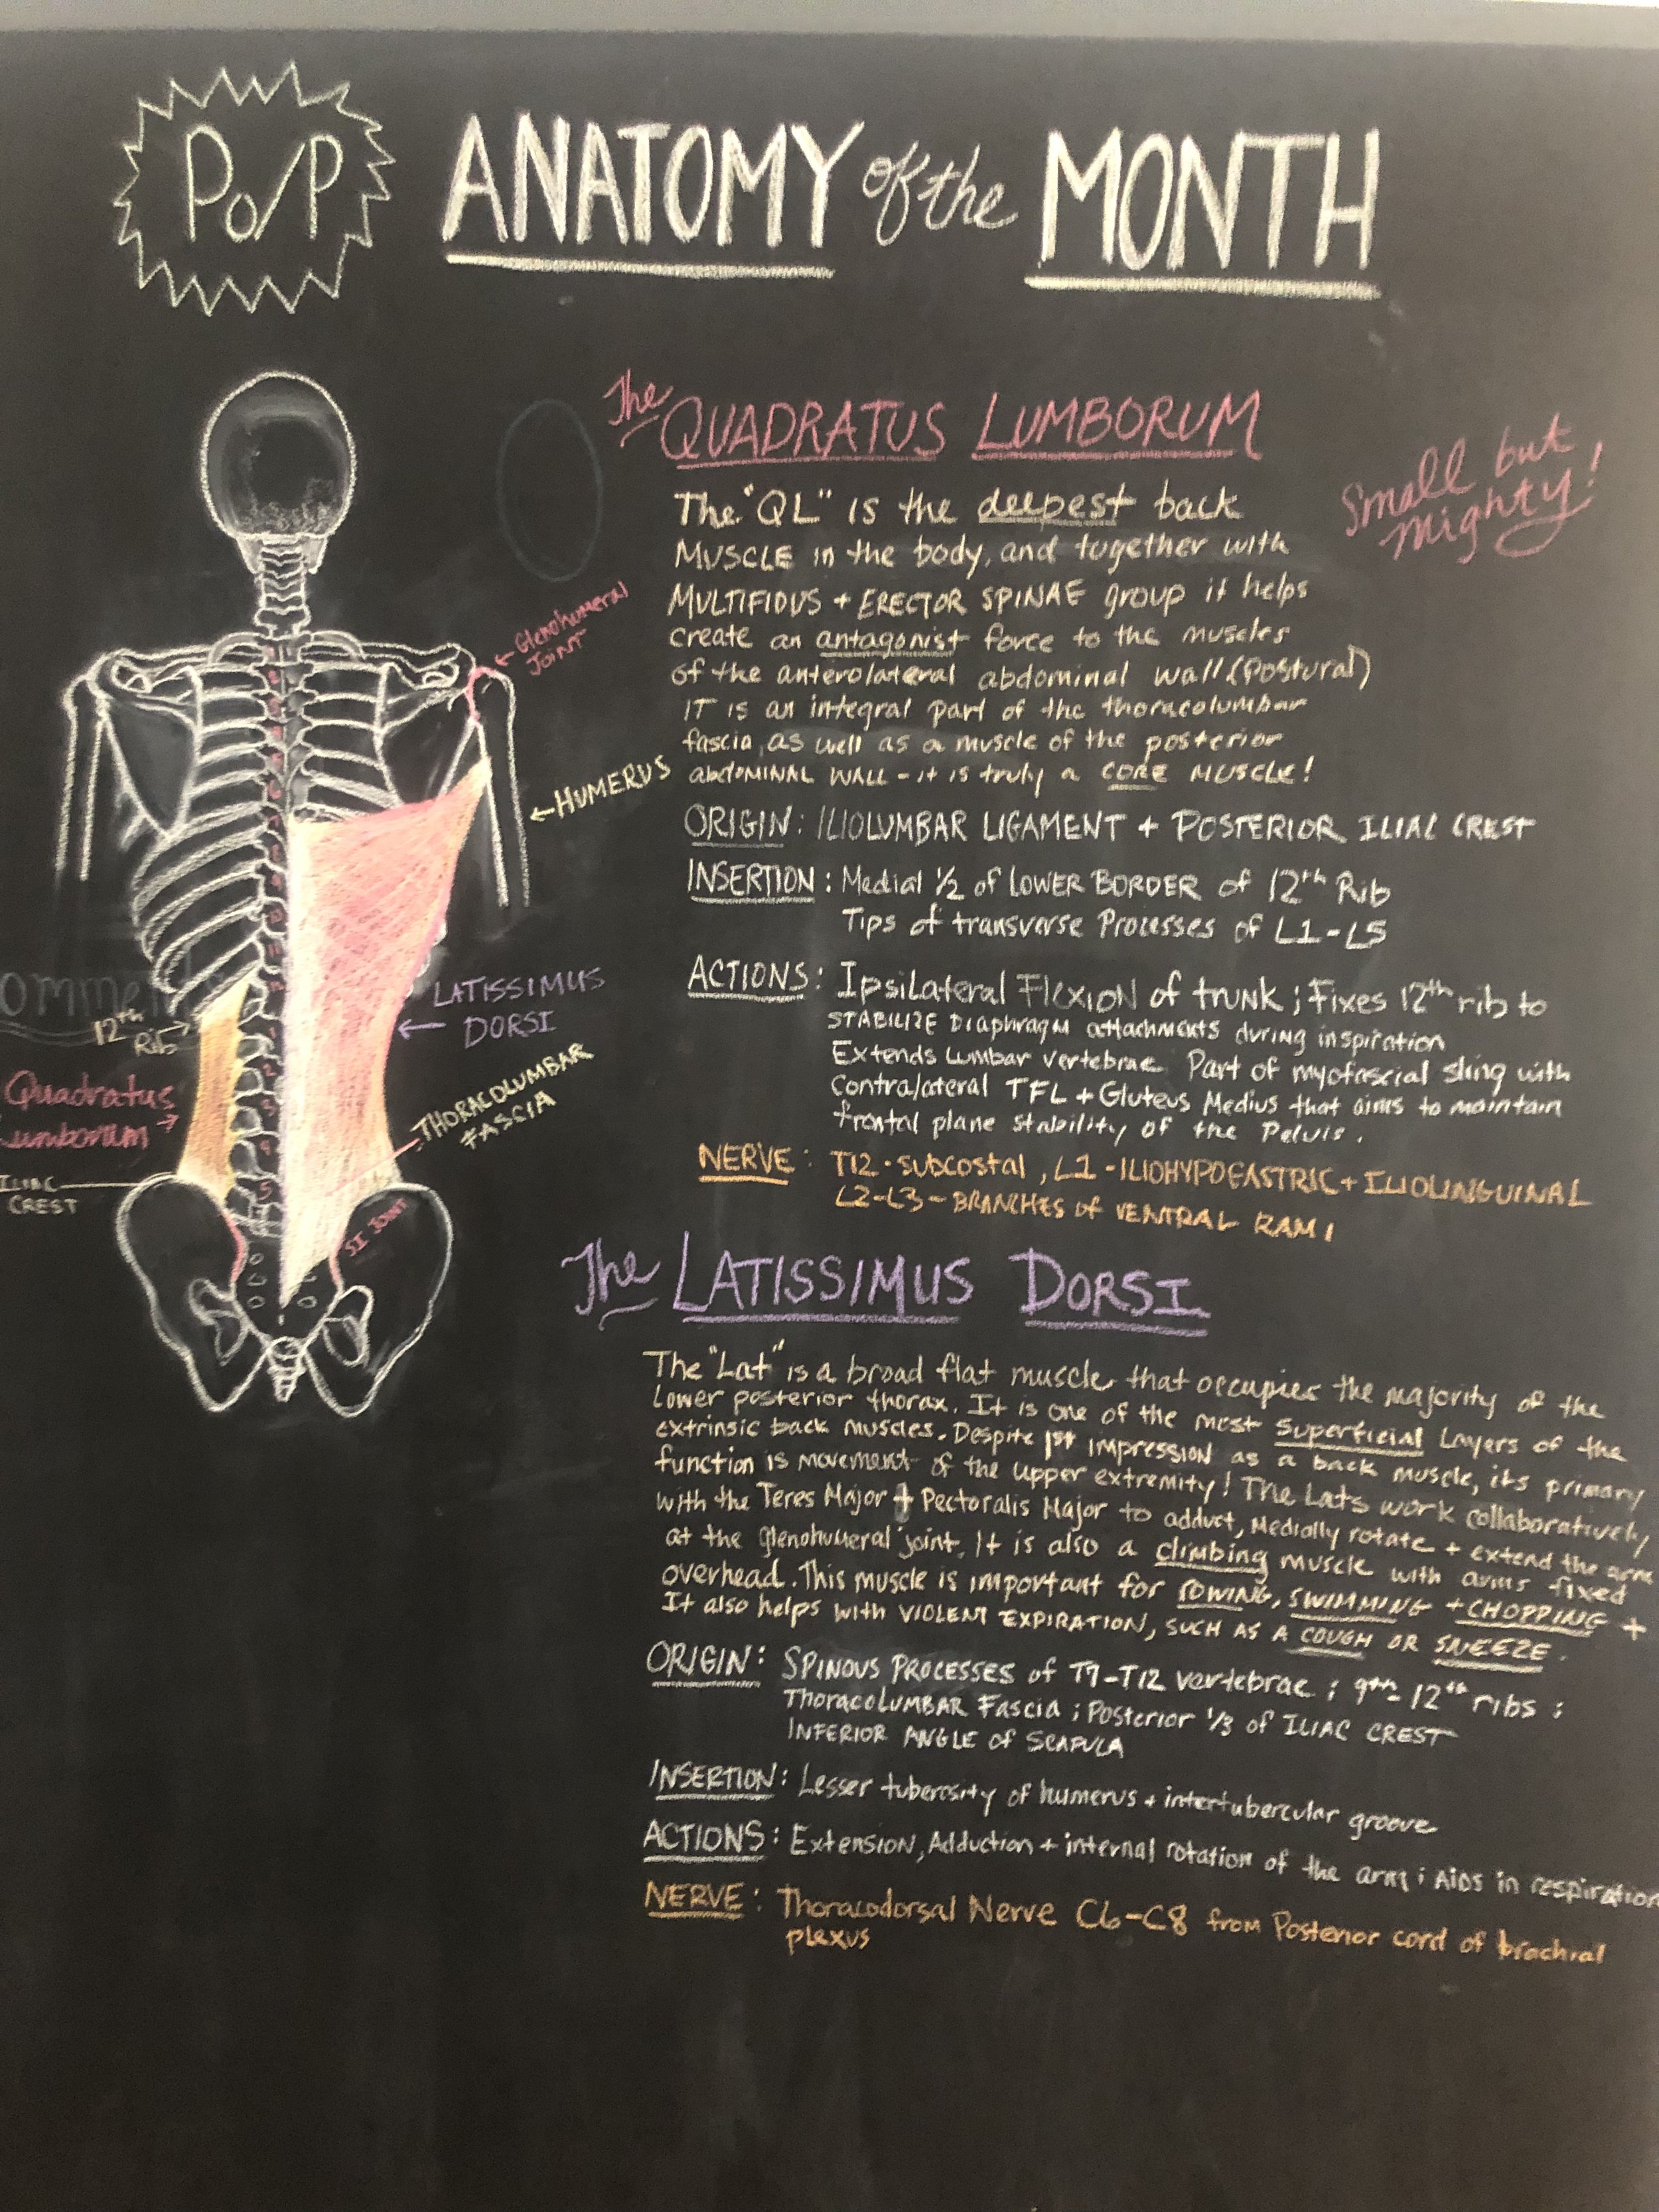 Po/P
ANATOMY of the MONTH
The QUADRATUS LUMBORUM
Small but
Mighty!
The "QL" is the deepest back
MUSCLE in the body, and together with
MULTIFIDUS + ERECTOR SPINAE group it helps
create an antagonist force to the muscles
of the anterolateral abdominal wall (Postural)
IT is an integral part of the thoracolumbar
fascia, as well as a muscle of the posterior
abDOMINAL WALL - it is truly a CORE MUSCLE!
ORIGIN: ILIOLUMBAR LIGAMENT + POSTERIOR ILIAC CREST
INSERTION: Medial 1/2 of LOWER BORDER of 12th Rib
Tips of transverse Processes of L1-L5
ACTIONS: Ipsilateral Flexion of trunk; Fixes 12th rib to
STABILIZE Diaphragm attachments during inspiration
Extends Lumbar vertebrae. Part of myofascial sling with
Contralateral TFL + Gluteus Medius that aims to maintain
frontal plane stability of the Pelvis.
NERVE: T12-subcostal, L1-ILIOHYPOGASTRIC + ILIOLINGUINAL
L2-L3-BRANCHES of VENTRAL RAMI
The LATISSIMUS DORSI
The "Lat" is a broad flat muscle that occupies the majority of the
Lower posterior thorax. It is one of the most superficial Layers of the
extrinsic back muscles. Despite 1st impression as a back muscle, its primary
function is movement of the upper extremity! The Lats work collaboratively
with the Teres Major + Pectoralis Major to adduct, Medially rotate + extend the arm
at the glenohumeral joint. It is also a climbing muscle with arms fixed
overhead. This muscle is important for ROWING, SWIMMING + CHOPPING +
It also helps with VIOLENT EXPIRATION, SUCH AS A COUGH OR SNEEZE.
ORIGIN: SPINOUS PROCESSES of T7-T12 vertebrae; 9th-12th ribs;
Thoracolumbar Fascia; Posterior 1/3 of ILIAC CREST
INFERIOR ANGLE of SCAPULA
INSERTION: Lesser tuberosity of humerus + intertubercular groove
ACTIONS: Extension, Adduction + internal rotation of the arm; AIDS in respiration
NERVE: Thoracodorsal Nerve C6-C8 from Posterior cord of brachial
plexus
Glenohumeral
JOINT
HUMERUS
LATISSIMUS
DORSI
THORACOLUMBAR
FASCIA
SI JOINT
12th
Rib
Quadratus
Lumborum
ILIAC
CREST